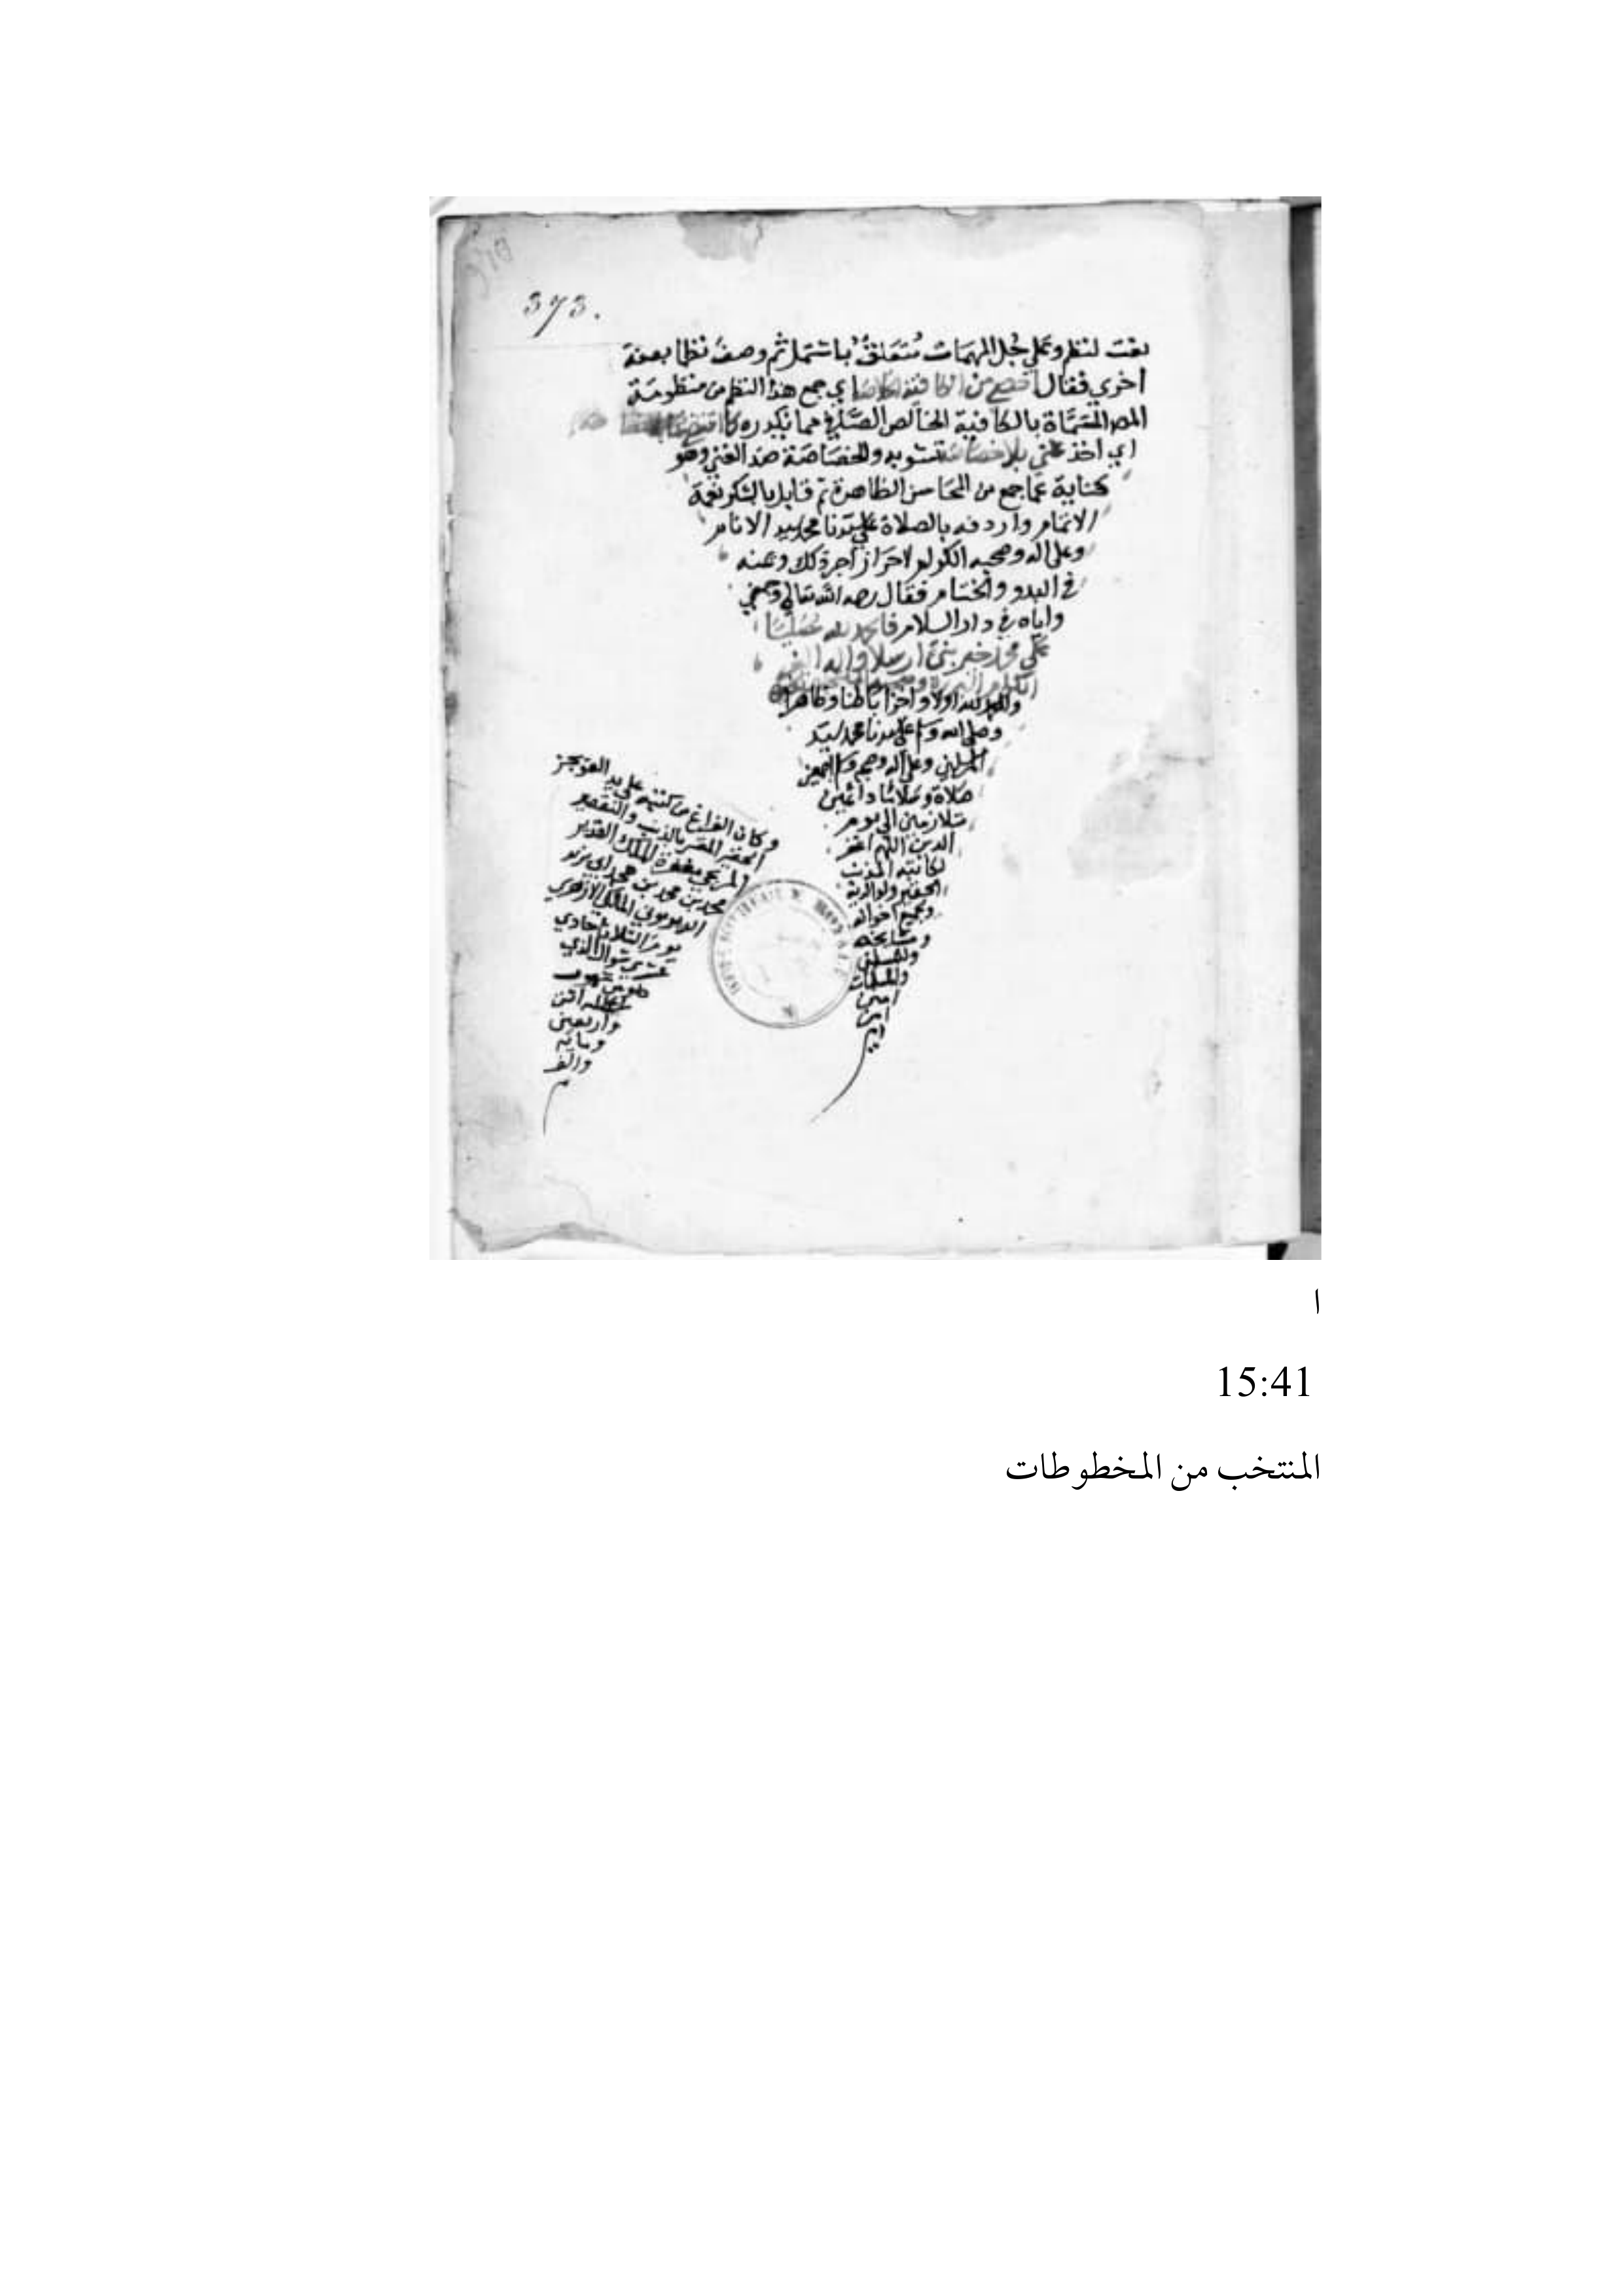 373.
نعت لنظم وعلى جل المهمات متعلق باشتمل ثم وصف نظما بصفة
اخري فقال احصى من الكافية الخلاصه اي جمع هذا النظم من منظومة
المص المسماة بالكافية الخالص الصافي مما يكدره كما اقتضى
اي اخذ غنى بلا خصاصة تشوبه والخصاصة ضد الغنى وهو
كناية عما جمع من المحاسن الظاهرة ثم قابل بالشكر نعمة
الاتمام واردفه بالصلاة على سيدنا محمد سيد الانام
وعلى اله وصحبه الكرام لاحراز اجر ذلك
في البدو والختام فقال رحمه الله تعالى وجمعني
واياه في دار السلام فاحمد الله مصليا
على محمد خير نبي ارسلا واله الغر
الكرام البررة وصحبه
والحمد لله اولا واخرا باطنا وظاهرا
وصلى الله وسلم على سيدنا محمد سيد
المرسلين وعلى اله وصحبه وسلم اجمعين
صلاة وسلاما دائمين
متلازمين الى يوم
الدين اللهم اغفر
لكاتبه المذنب
الحقير ولوالديه
وجميع اخوانه
ومشايخه
والمسلمين
والمسلمات
امين
امين
امين
وكان الفراغ من كتبه على يد العويجز
الحقير المقر بالذنب والتقصير
المرتجي مغفرة الملك القدير
محمد بن محمد بن محمد ابي يزيد
المالكي الازهري
يوم الثلاثا حادي
عشر شوال الذي
هو من شهور
اثنين
واربعين
ومائه
والف
ا
15:41
المنتخب من المخطوطات